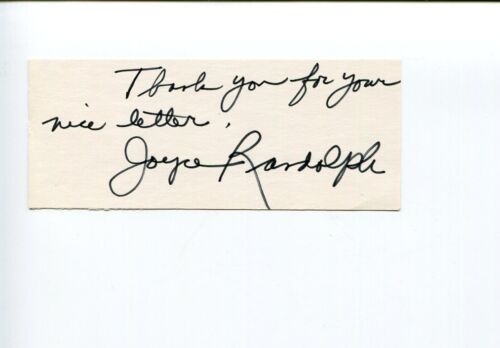 Thank you for your
nice letter.
Joyce Randolph